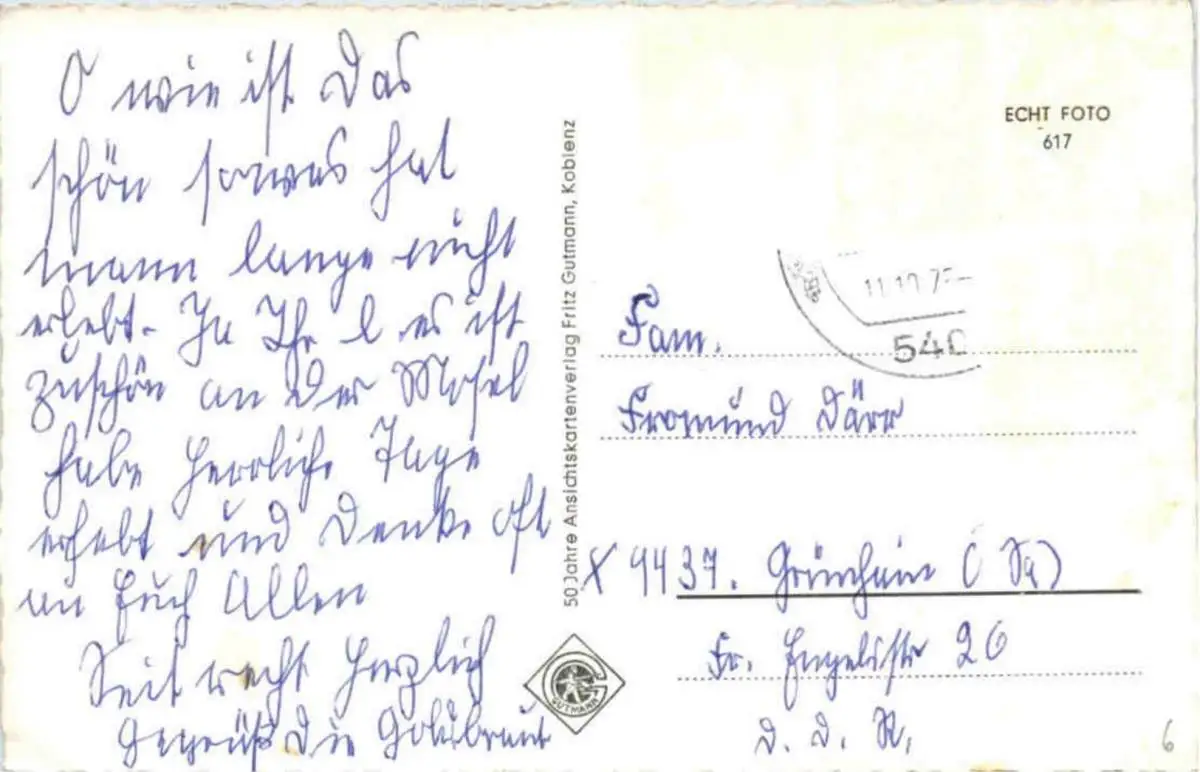 O wie ist das
schön sowas hat
mann lange nicht
erlebt. Ja Ihr l. es ist
zuschön an der Mosel
habe herrliche Tage
erhebt und denke oft
an Euch Allen
Seit recht herzlich
gegrüß die Goldbraut
50 Jahre Ansichtskartenverlag Fritz Gutmann, Koblenz
GUTMANN
ECHT FOTO
617
11.10.7
540
Fam.
Fromund Därr
X 9437. Grünhain (Sa)
Fr. Engelsstr 26
d. d. R.
6